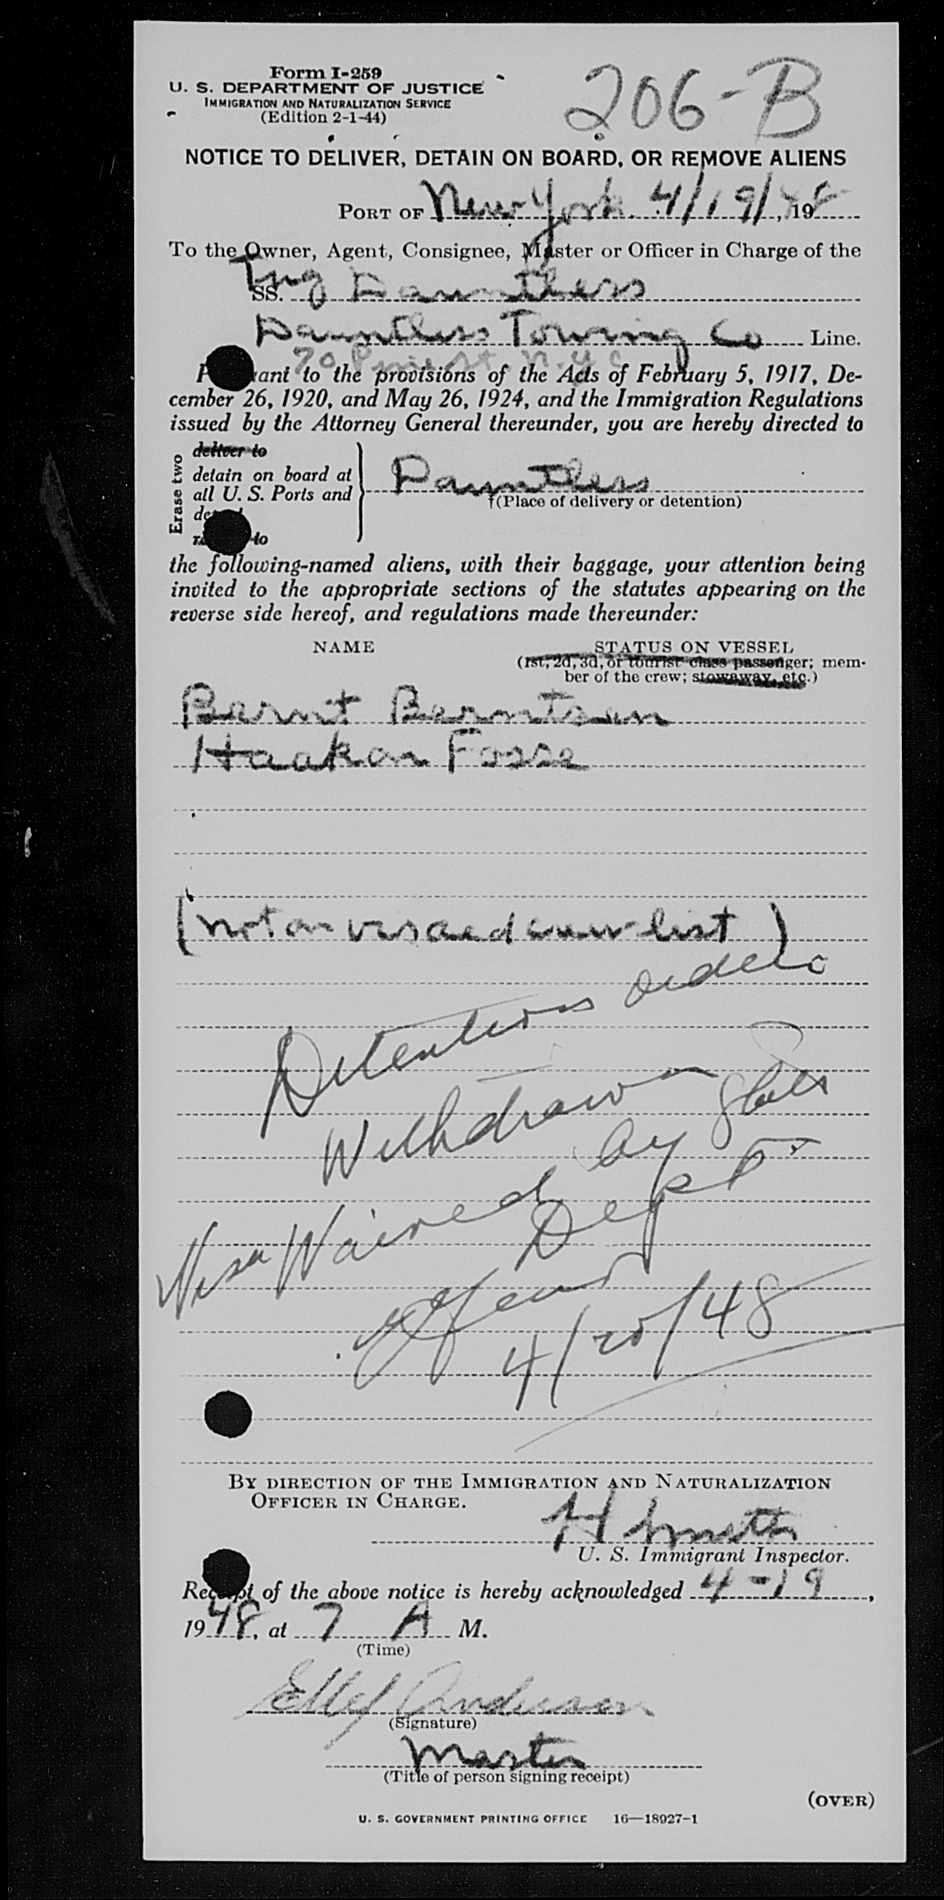 Form I-259
U. S. DEPARTMENT OF JUSTICE
IMMIGRATION AND NATURALIZATION SERVICE
(Edition 2-1-44)
206-B
NOTICE TO DELIVER, DETAIN ON BOARD, OR REMOVE ALIENS
PORT OF New York. 4/19/, 1948
To the Owner, Agent, Consignee, Master or Officer in Charge of the
SS. Tug Dauntless
Dauntless Towing Co Line.
70 Pine St N.Y.C
to the provisions of the Acts of February 5, 1917, De-
cember 26, 1920, and May 26, 1924, and the Immigration Regulations
issued by the Attorney General thereunder, you are hereby directed to
Erase two
deliver to
detain on board at
all U. S. Ports and
to
Dauntless
†(Place of delivery or detention)
the following-named aliens, with their baggage, your attention being
invited to the appropriate sections of the statutes appearing on the
reverse side hereof, and regulations made thereunder:
NAME STATUS ON VESSEL
(1st, 2d, 3d, or tourist class passenger; mem-
ber of the crew; stowaway, etc.)
Bernt Berntsen
Haakon Fosse
(not on visaed crew list)
Detention order
Withdrawn
Visa Waived by State
Dept
4/20/48
BY DIRECTION OF THE IMMIGRATION AND NATURALIZATION
OFFICER IN CHARGE.
H Smith
U. S. Immigrant Inspector.
Receipt of the above notice is hereby acknowledged 4-19,
1948, at 7 A M.
(Time)
Ellef Anderson
(Signature)
Master
(Title of person signing receipt)
(OVER)
U. S. GOVERNMENT PRINTING OFFICE 16—18927-1